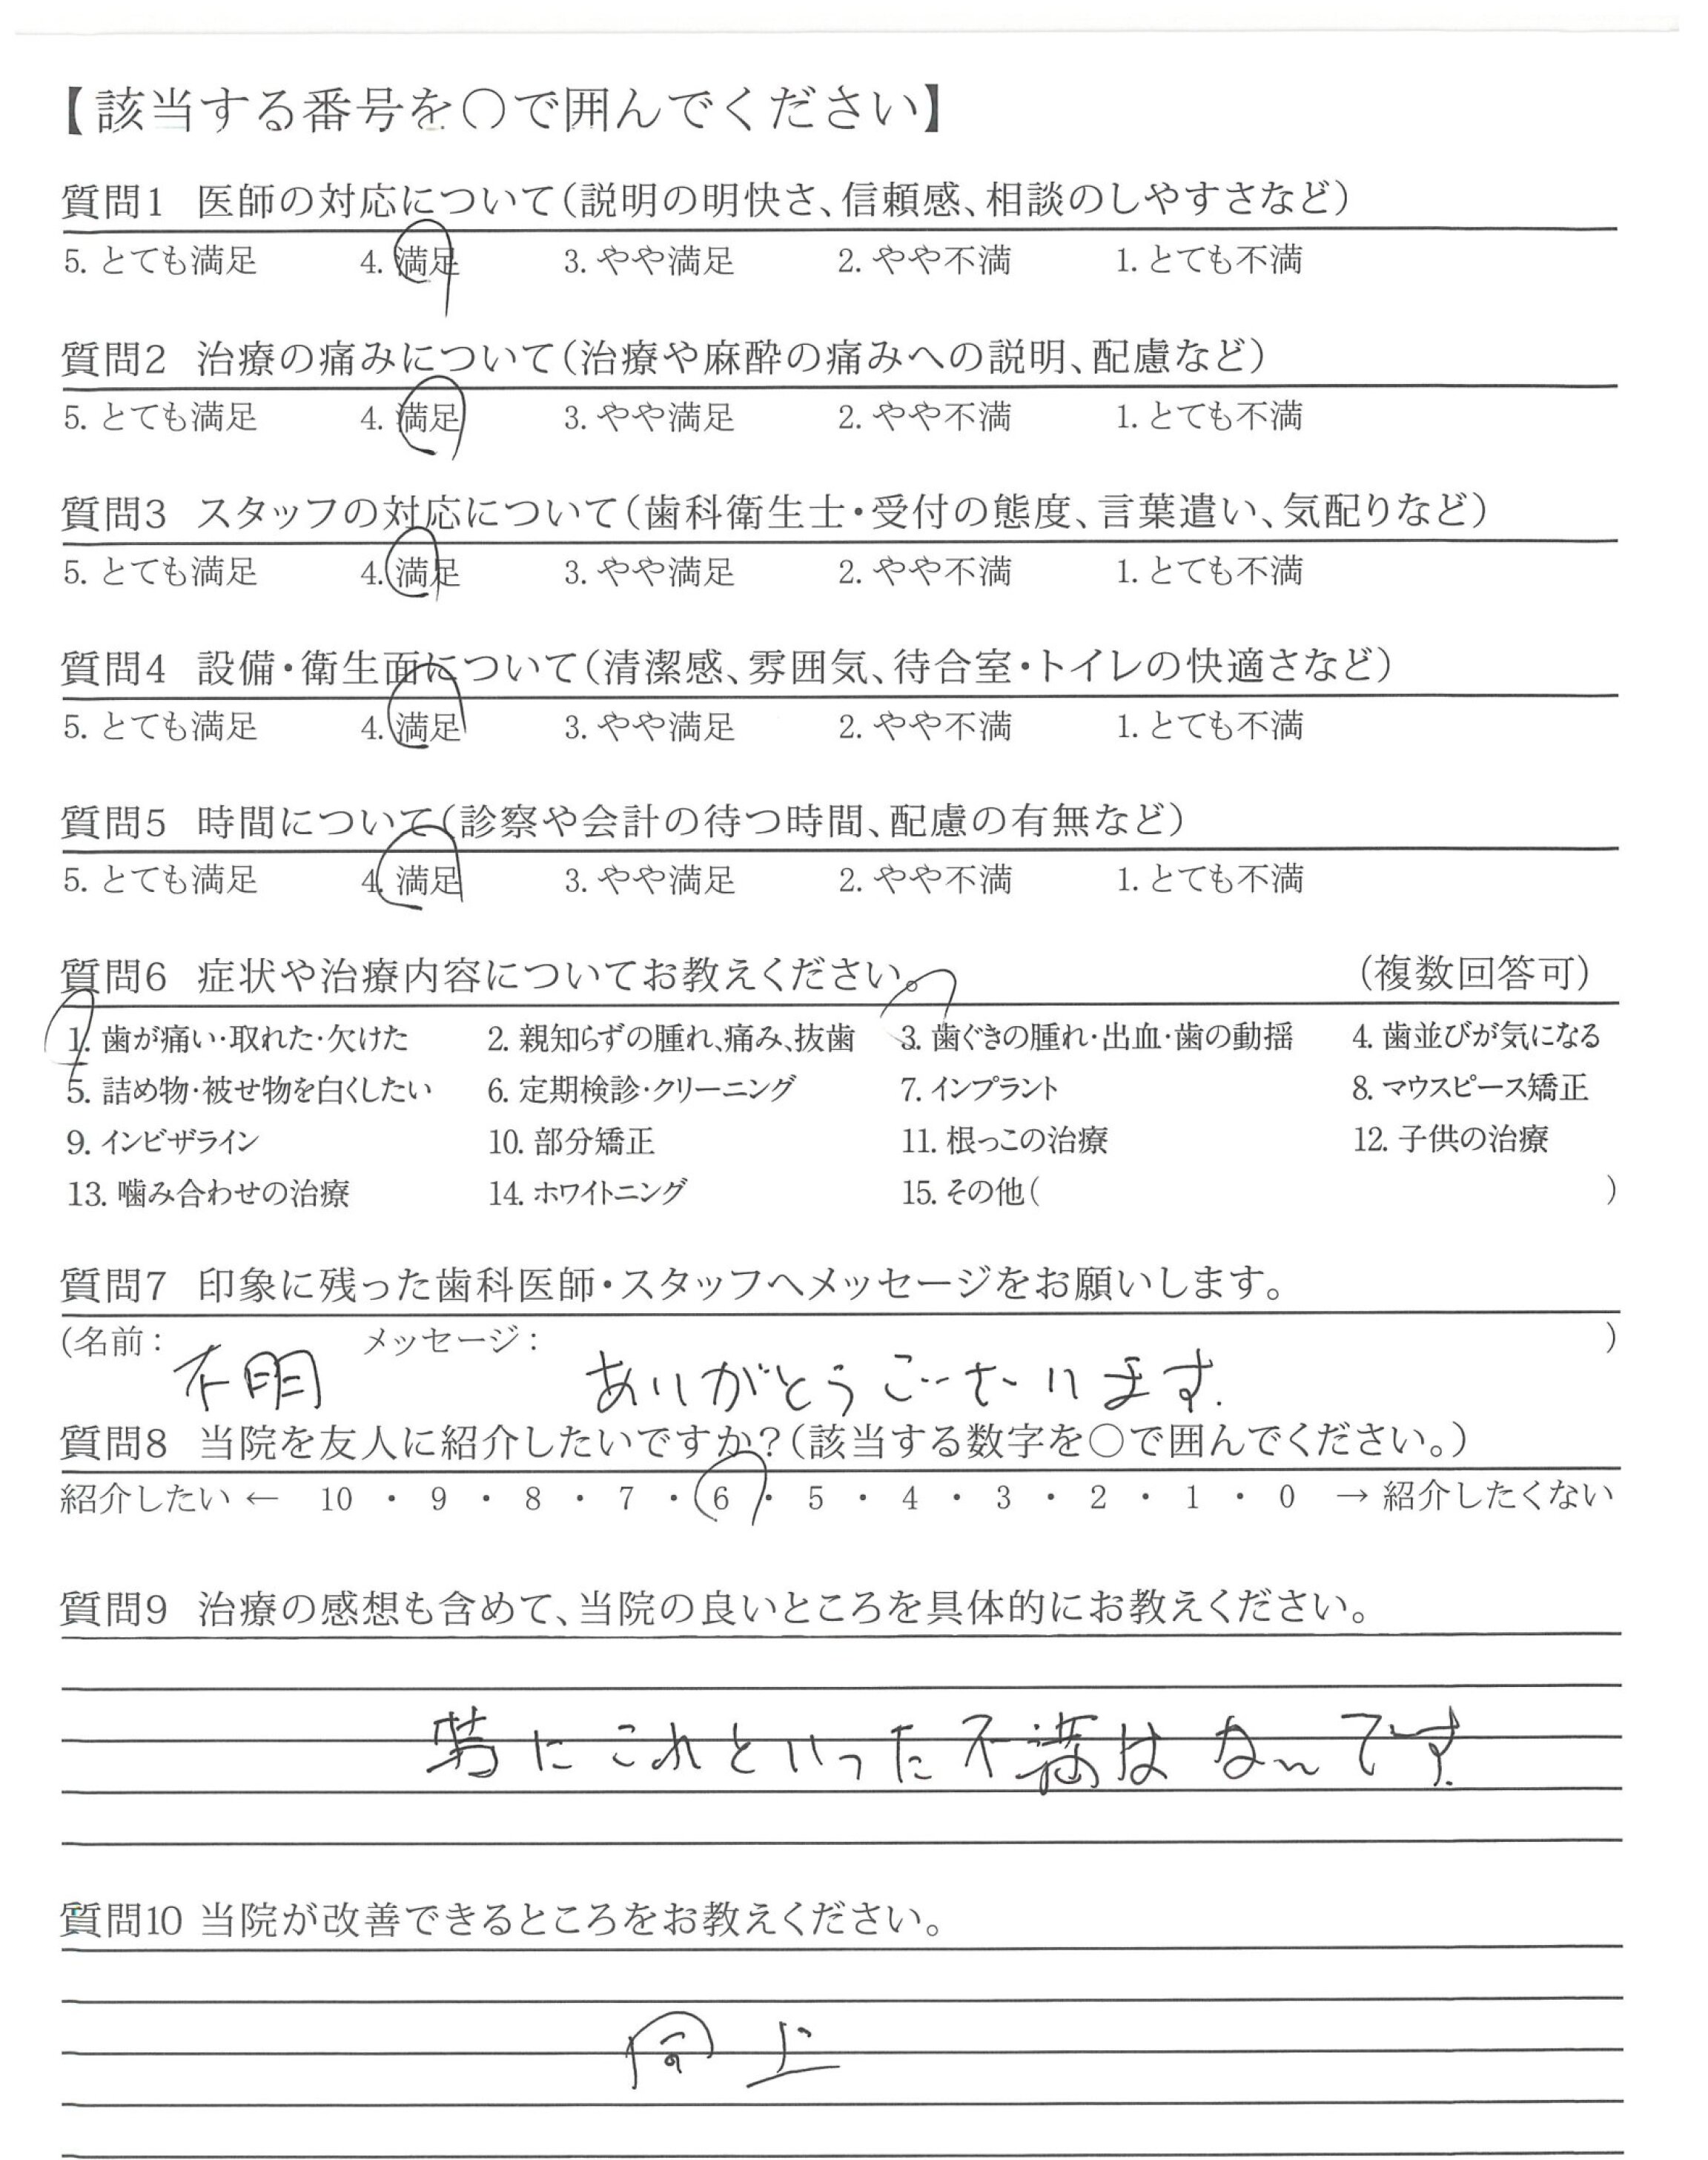 【該当する番号を○で囲んでください】
質問1 医師の対応について(説明の明快さ、信頼感、相談のしやすさなど)
5. とても満足 4. 満足 3. やや満足 2. やや不満 1. とても不満
質問2 治療の痛みについて(治療や麻酔の痛みへの説明、配慮など)
5. とても満足 4. 満足 3. やや満足 2. やや不満 1. とても不満
質問3 スタッフの対応について(歯科衛生士・受付の態度、言葉遣い、気配りなど)
5. とても満足 4. 満足 3. やや満足 2. やや不満 1. とても不満
質問4 設備・衛生面について(清潔感、雰囲気、待合室・トイレの快適さなど)
5. とても満足 4. 満足 3. やや満足 2. やや不満 1. とても不満
質問5 時間について(診察や会計の待つ時間、配慮の有無など)
5. とても満足 4. 満足 3. やや満足 2. やや不満 1. とても不満
質問6 症状や治療内容についてお教えください。 (複数回答可)
1. 歯が痛い・取れた・欠けた 2. 親知らずの腫れ、痛み、抜歯 3. 歯ぐきの腫れ・出血・歯の動揺 4. 歯並びが気になる
5. 詰め物・被せ物を白くしたい 6. 定期検診・クリーニング 7. インプラント 8. マウスピース矯正
9. インビザライン 10. 部分矯正 11. 根っこの治療 12. 子供の治療
13. 噛み合わせの治療 14. ホワイトニング 15. その他( )
質問7 印象に残った歯科医師・スタッフへメッセージをお願いします。
(名前: メッセージ: )
不明 ありがとうございます.
質問8 当院を友人に紹介したいですか?(該当する数字を○で囲んでください。)
紹介したい ← 10 ・ 9 ・ 8 ・ 7 ・ 6 ・ 5 ・ 4 ・ 3 ・ 2 ・ 1 ・ 0 → 紹介したくない
質問9 治療の感想も含めて、当院の良いところを具体的にお教えください。
特にこれといった不満はないです.
質問10 当院が改善できるところをお教えください。
同上